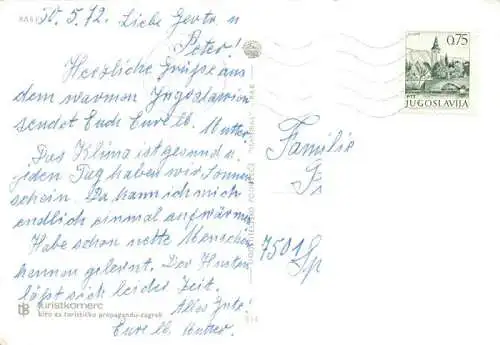 30.5.72. Liebe Gerta u
Peter!
Herzliche Grüsse aus
dem warmen Jugoslawien
sendet Euch Eure lb. Mutter.
Das Klima ist gesund u.
jeden Tag haben wir Sonnen
schein. Da kann ich mich
endlich einmal aufwärmen
Habe schon nette Menschen
kennen gelernt. Der Husten
läßt sich leider Zeit.
Alles Gute!
Eure lb. Mutter.
turistkomerc
biro za turističku propagandu-zagreb
0.75
JUGOSLAVIJA
Familie
7501